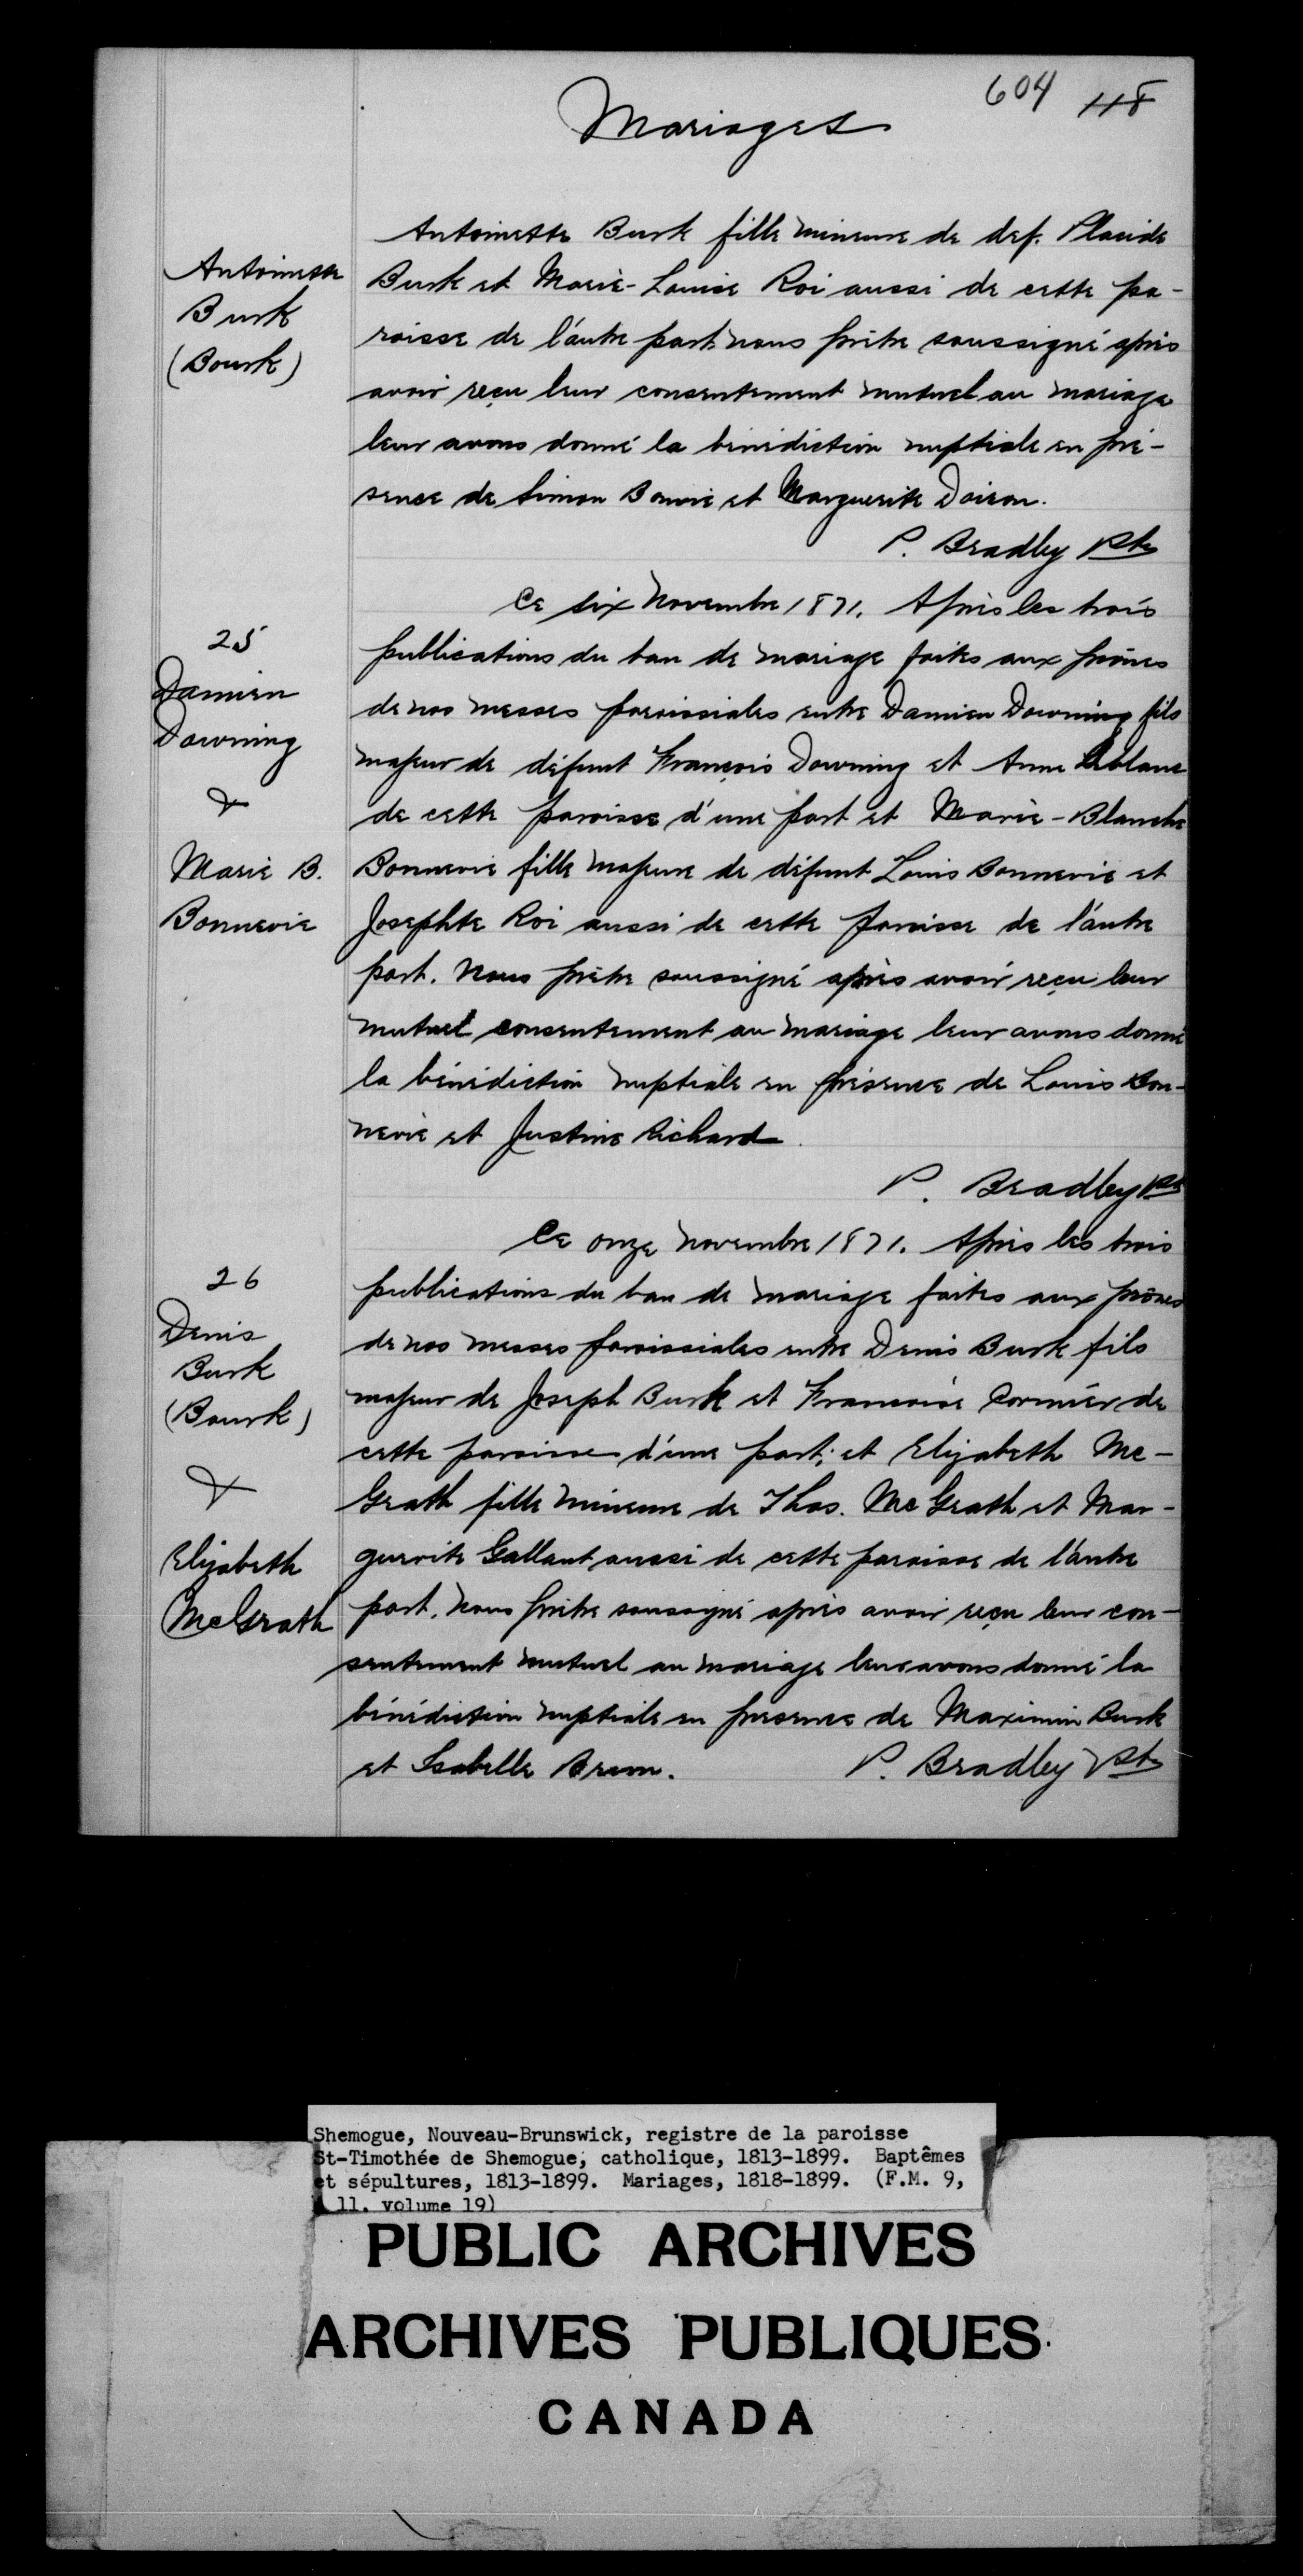 604 118
Mariages
Antoinette
Burk
(Bourk)
Antoinette Burk fille mineure de def. Placide
Burk et Marie-Louise Roi aussi de cette pa-
roisse de l'autre part nous prêtre soussigné après
avoir reçu leur consentement mutuel au mariage
leur avons donné la bénédiction nuptiale en pré-
sence de Simon Bonnie et Marguerite Doiron.
P. Bradley Ptre
25
Damien
Downing
&
Marie B.
Bonnevie
Ce six Novembre 1871. Après les trois
publications du ban de mariage faites aux prônes
de nos messes paroissiales entre Damien Downing fils
majeur de défunt François Downing et Anne Leblanc
de cette paroisse d'une part et Marie-Blanche
Bonnevie fille majeure de défunt Louis Bonnevie et
Josephte Roi aussi de cette paroisse de l'autre
part. Nous prêtre soussigné après avoir reçu leur
mutuel consentement au mariage leur avons donné
la bénédiction nuptiale en présence de Louis Bon-
nevie et Justine Richard
P. Bradley Ptre
26
Denis
Burk
(Bourk)
&
Elizabeth
McGrath
Ce onze novembre 1871. Après les trois
publications du ban de mariage faites aux prônes
de nos messes paroissiales entre Denis Burk fils
majeur de Joseph Burk et Francoise Cormier de
cette paroisse d'une part; et Elizabeth Mc-
Grath fille mineure de Thos. McGrath et Mar-
guerite Gallant aussi de cette paroisse de l'autre
part. Nous prêtre soussigné après avoir reçu leur con-
sentement mutuel au mariage leur avons donné la
bénédiction nuptiale en presence de Maximin Burk
et Isabelle Brun. P. Bradley Ptre
Shemogue, Nouveau-Brunswick, registre de la paroisse
St-Timothée de Shemogue, catholique, 1813-1899. Baptêmes
et sépultures, 1813-1899. Mariages, 1818-1899. (F.M. 9,
11. volume 19)
PUBLIC ARCHIVES
ARCHIVES PUBLIQUES
CANADA